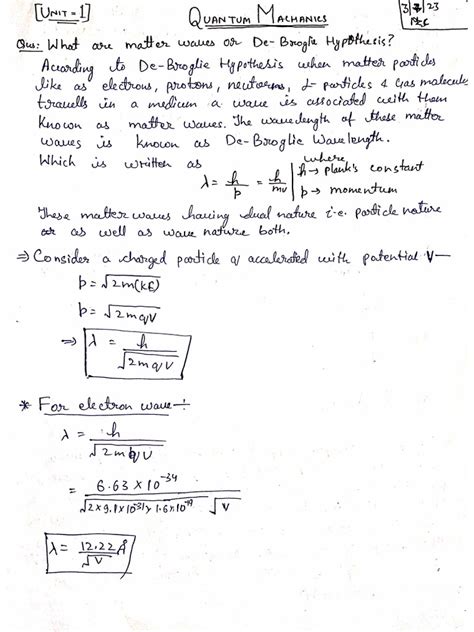 [UNIT-1] QUANTUM MACHANICS 3/7/23
Ques: What are matter waves or De-Broglie Hypothesis?
According to De-Broglie Hypothesis when matter particles
like as electrons, protons, neutrons, α- particles & Gas molecules
travells in a medium a wave is associated with them
Known as matter waves. The wavelength of these matter
waves is known as De-Broglie Wavelength.
Which is written as
λ = h/p = h/mv | where, h → plank's constant
p → momentum
These matter waves having dual nature i.e. particle nature
or as well as wave nature both.
⇒ Consider a charged particle q accelerated with potential V—
p = √2m(KE)
p = √2mqV
⇒ λ = h/√2mqV
* For electron wave÷
λ = h/√2mqV
= 6.63 × 10^-34/√2×9.1×10^-31×1.6×10^-19 √V
λ = 12.22/√V Å